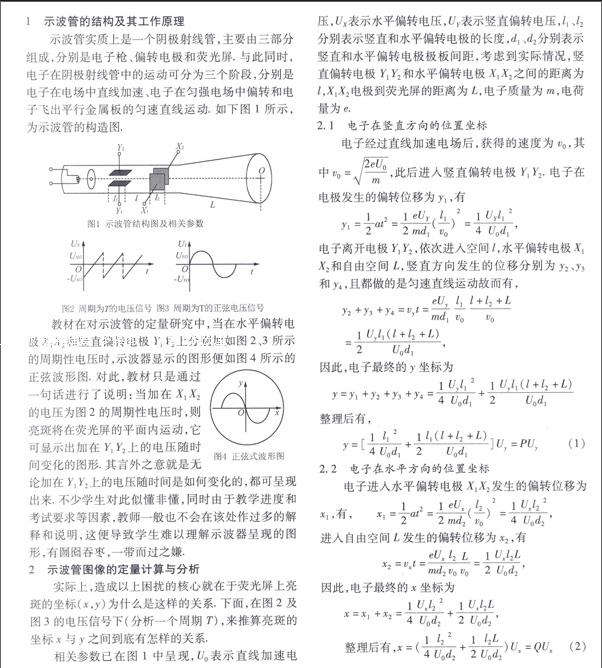 1 示波管的结构及其工作原理
示波管实质上是一个阴极射线管,主要由三部分
组成,分别是电子枪、偏转电极和荧光屏. 与此同时,
电子在阴极射线管中的运动可分为三个阶段,分别是
电子在电场中直线加速、电子在匀强电场中偏转和电
子飞出平行金属板的匀速直线运动. 如下图 1 所示,
为示波管的构造图.
Y₁ X₂
O
l₁ l l₂ L
Y₁ X₁
图1 示波管结构图及相关参数
U₁ U₁
U₀ U₀
O t O t
-U₀ -U₀
图2 周期为T的电压信号 图3 周期为T的正弦电压信号
教材在对示波管的定量研究中,当在水平偏转电
极
所示
的周期性电压时,示波器显示的图形便如图 4 所示的
正弦波形图. 对此,教材只是通过
一句话进行了说明:当加在 X₁X₂
的电压为图 2 的周期性电压时,则
亮斑将在荧光屏的平面内运动,它
可显示出加在 Y₁Y₂ 上的电压随时
间变化的图形. 其言外之意就是无
y
O x
图4 正弦式波形图
论加在 Y₁Y₂ 上的电压随时间是如何变化的,都可呈现
出来. 不少学生对此似懂非懂,同时由于教学进度和
考试要求等因素,教师一般也不会在该处作过多的解
释和说明,这便导致学生难以理解示波器呈现的图
形,有囫囵吞枣,一带而过之嫌.
2 示波管图像的定量计算与分析
实际上,造成以上困扰的核心就在于荧光屏上亮
斑的坐标(x,y)为什么是这样的关系. 下面,在图 2 及
图 3 的电压信号下(分析一个周期 T),来推算亮斑的
坐标 x 与 y 之间到底有怎样的关系.
相关参数已在图 1 中呈现,U₀ 表示直线加速电
压,Uₓ 表示水平偏转电压,Uᵧ 表示竖直偏转电压,l₁、l₂
分别表示竖直和水平偏转电极的长度,d₁、d₂ 分别表示
竖直和水平偏转电极极板间距,考虑到实际情况,竖
直偏转电极 Y₁Y₂ 和水平偏转电极 X₁X₂ 之间的距离为
l,X₁X₂ 电极到荧光屏的距离为 L,电子质量为 m,电荷
量为 e.
2.1 电子在竖直方向的位置坐标
电子经过直线加速电场后,获得的速度为 v₀,其
中 v₀=√(2eU₀/m),此后进入竖直偏转电极 Y₁Y₂. 电子在
电极发生的偏转位移为 y₁,有
y₁=1/2 at²=1/2 eUᵧ/md₁ (l₁/v₀)²=1/4 Uᵧl₁²/U₀d₁,
电子离开电极 Y₁Y₂,依次进入空间 l,水平偏转电极 X₁
X₂ 和自由空间 L,竖直方向发生的位移分别为 y₂、y₃
和 y₄,且都做的是匀速直线运动故而有,
y₂+y₃+y₄=vᵧt=eUᵧ/md₁ l₁/v₀ (l+l₂+L)/v₀
=1/2 Uᵧl₁(l+l₂+L)/U₀d₁,
因此,电子最终的 y 坐标为
y=y₁+y₂+y₃+y₄=1/4 Uᵧl₁²/U₀d₁+1/2 Uᵧl₁(l+l₂+L)/U₀d₁
整理后有,
y=[1/4 l₁²/U₀d₁+1/2 l₁(l+l₂+L)/U₀d₁]Uᵧ=PUᵧ (1)
2.2 电子在水平方向的位置坐标
电子进入水平偏转电极 X₁X₂ 发生的偏转位移为
x₁,有, x₁=1/2 at²=1/2 eUₓ/md₂ (l₂/v₀)²=1/4 Uₓl₂²/U₀d₂,
进入自由空间 L 发生的偏转位移为 x₂,有
x₂=vₓt=eUₓ/md₂ l₂/v₀ L/v₀=1/2 Uₓl₂L/U₀d₂,
因此,电子最终的 x 坐标为
x=x₁+x₂=1/4 Uₓl₂²/U₀d₂+1/2 Uₓl₂L/U₀d₂,
整理后有,x=(1/4 l₂²/U₀d₂+1/2 l₂L/U₀d₂)Uₓ=QUₓ (2)